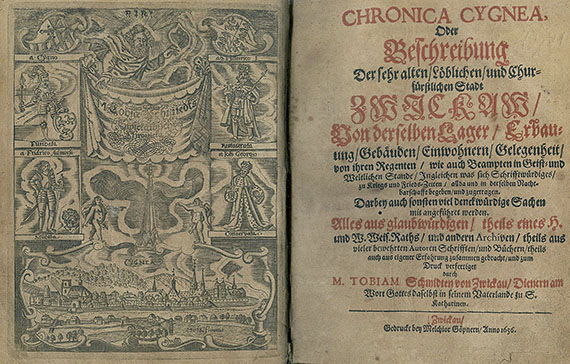 a Cygno
ab Henrico I
M. Tobiæ Schmiedts
Fundata
Restaurata
a Fridrico Admorso
a Joh Georgio
Conservata
CYGNEA
CHRONICA CYGNEA,
Oder
Beschreibung
Der sehr alten/Löblichen/und Chur-
fürstlichen Stadt
ZWICKAW/
Von derselben Lager/ Erbau-
ung/Gebäuden/Einwohnern/Gelegenheit/
von ihren Regenten/ wie auch Beampten in Geist-und
Weltlichen Stande/Ingleichen was sich Schrifftwürdiges/
zu Kriegs und Frieds-Zeiten/ allda und in derselben Nach-
barschafft begeben/und zugetragen.
Darbey auch sonsten viel denckwürdige Sachen
mit angeführet werden.
Alles aus glaubwürdigen/ theils eines H.
und W. Weis. Raths/ und andern Archiven/ theils aus
vieler bewehrten Autoren Schrifften/und Büchern/theils
auch aus eigner Erfahrung zusammen gebracht/und zum
Druck verfertiget
durch
M. TOBIAM Schmidten von Zwickau/ Dienern am
Wort Gottes daselbst in seinem Vaterlande zu S.
Katharinen.
Zwickau/
Gedruckt bey Melchior Göpnern/ Anno 1656.